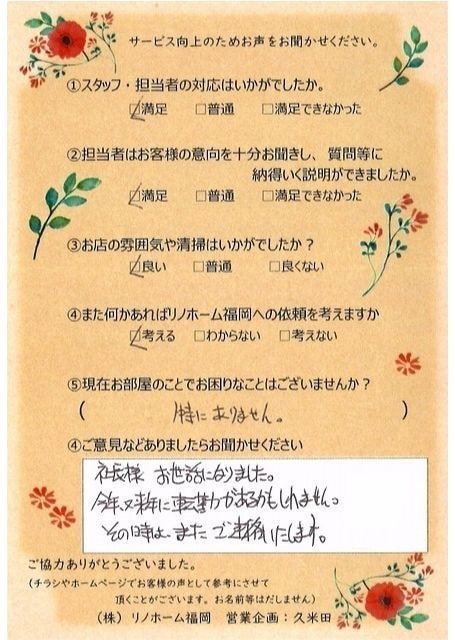 サービス向上のためお声をお聞かせください。
①スタッフ・担当者の対応はいかがでしたか。
☑満足 □普通 □満足できなかった
②担当者はお客様の意向を十分お聞きし、質問等に
納得いく説明ができましたか。
☑満足 □普通 □満足できなかった
③お店の雰囲気や清掃はいかがでしたか？
☑良い □普通 □良くない
④また何かあればリノホーム福岡への依頼を考えますか
☑考える □わからない □考えない
⑤現在お部屋のことでお困りなことはございませんか？
( 特にありません。 )
④ご意見などありましたらお聞かせください
社長様 お世話になりました。
今年、又来年に転勤があるかもしれません。
その時は、また ご連絡いたします。
ご協力ありがとうございました。
(チラシやホームページでお客様の声として参考にさせて
頂くことがございます。お名前等はだしません)
（株）リノホーム福岡 営業企画：久米田